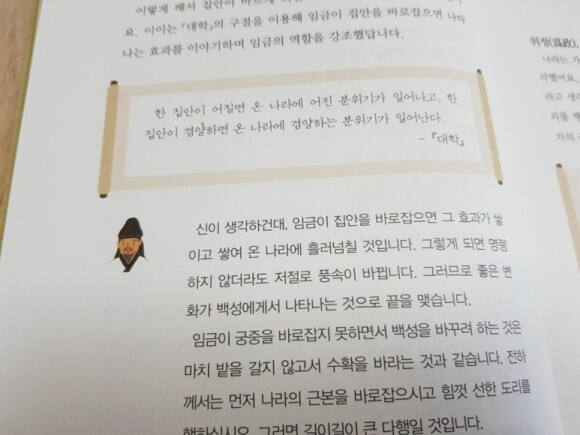 이렇게 해서 집안이 바르게
요. 이이는 『대학』의 구절을 이용해 임금이 집안을 바로잡으면 나라
나는 효과를 이야기하며 임금의 역할을 강조했답니다.
한 집안이 어질면 온 나라에 어진 분위기가 일어나고, 한
집안이 겸양하면 온 나라에 겸양하는 분위기가 일어난다.
- 『대학』
신이 생각하건대, 임금이 집안을 바로잡으면 그 효과가 쌓
이고 쌓여 온 나라에 흘러넘칠 것입니다. 그렇게 되면 명령
하지 않더라도 저절로 풍속이 바뀝니다. 그러므로 좋은 변
화가 백성에게서 나타나는 것으로 끝을 맺습니다.
임금이 궁중을 바로잡지 못하면서 백성을 바꾸려 하는 것은
마치 밭을 갈지 않고서 수확을 바라는 것과 같습니다. 전하
께서는 먼저 나라의 근본을 바로잡으시고 힘껏 선한 도리를
행하십시오. 그러면 길이길이 큰 다행일 것입니다.
위정(爲政),
나라는 가
각했어요.
라고 생각
치를 행
치의 근